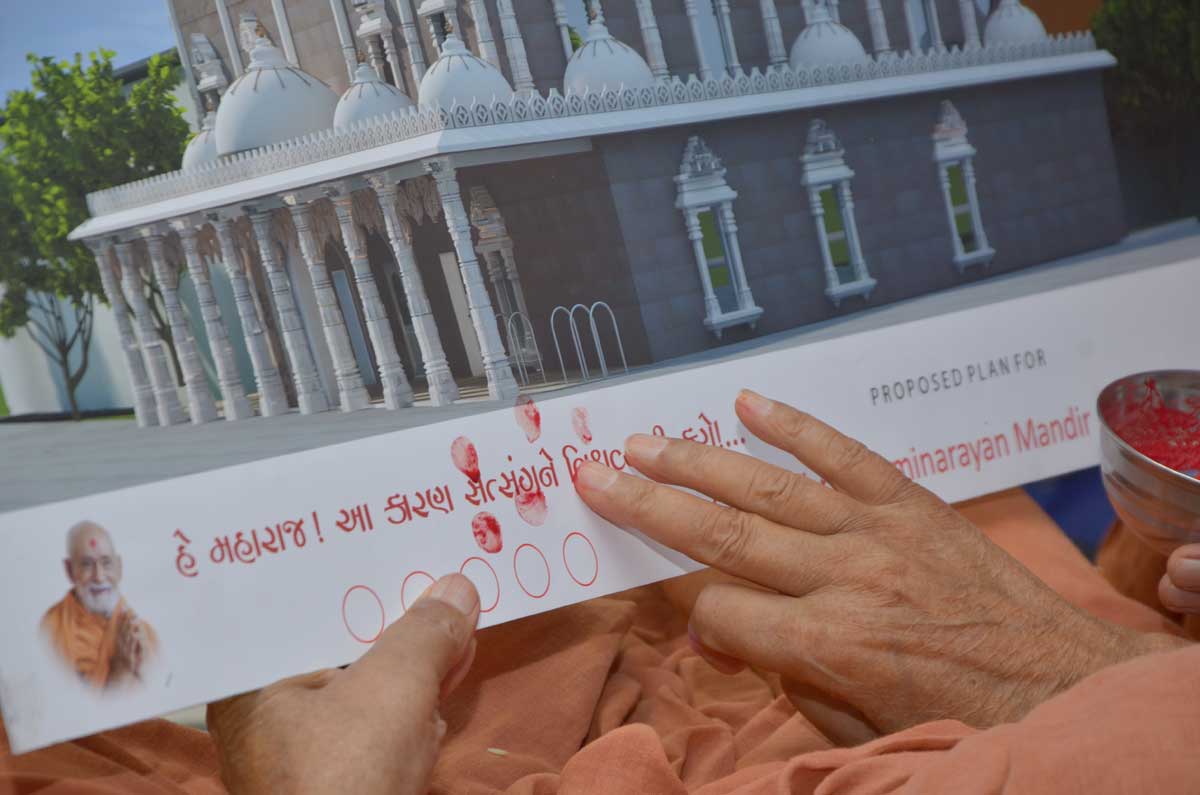 PROPOSED PLAN FOR
minarayan Mandir
હે મહારાજ ! આ કારણ સત્સંગને